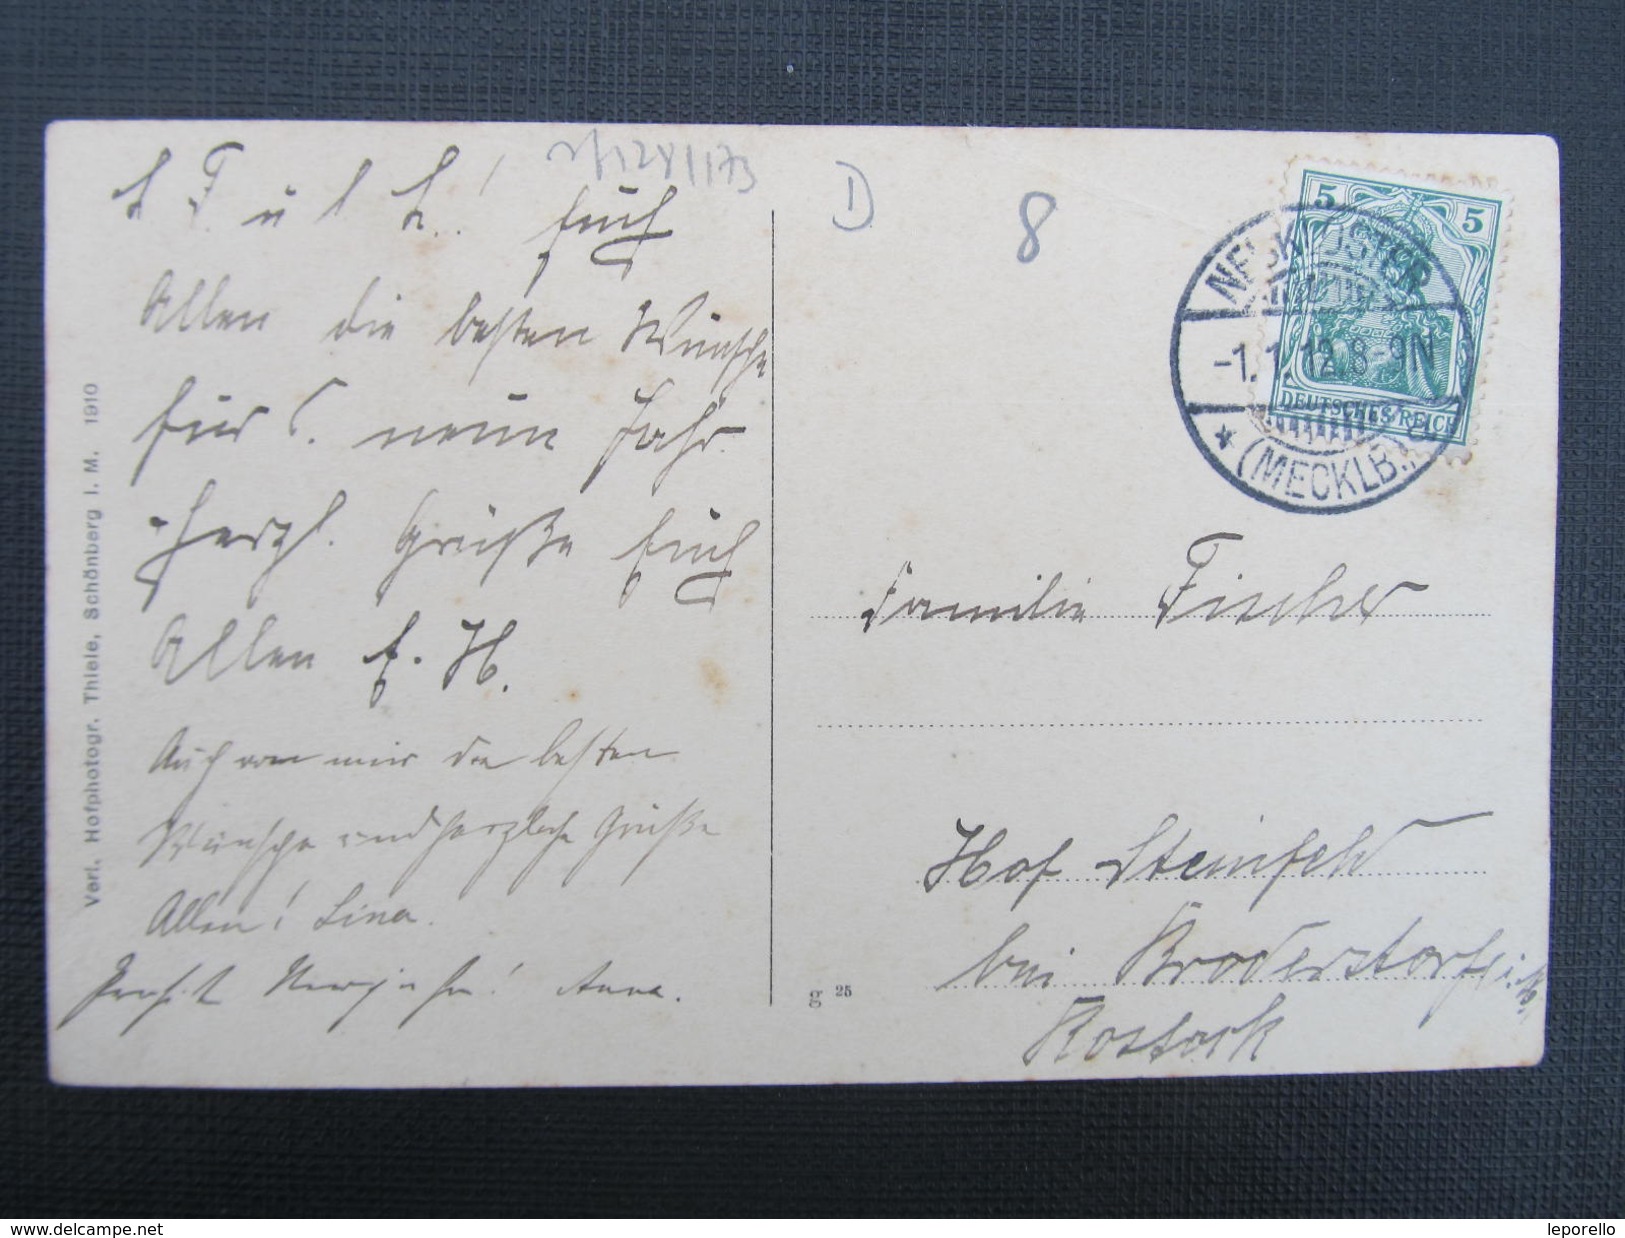 L. F. u. L. K.! Euch
Allen die besten Wünsche
für d. neue Jahr.
Herzl. Grüße Euch
Allen E. H.
Auch von mir die besten
Wünsche und herzliche Grüße
Allen! Lina.
Prosit Neujahr! Anna.
Verl. Hofphotogr. Thiele, Schönberg I. M. 1910
D
8
5 5
DEUTSCHES REICH
-1.1.12.8-9N
(MECKLB.)
Familie Fischer
Hof Steinfeld
bei Broderstorf i. M.
Rostock
g 25
www.delcampe.net
leporello